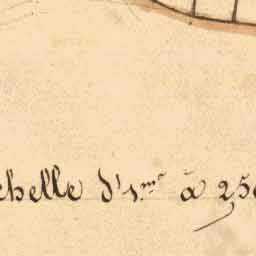 chelle d'1.me à 250